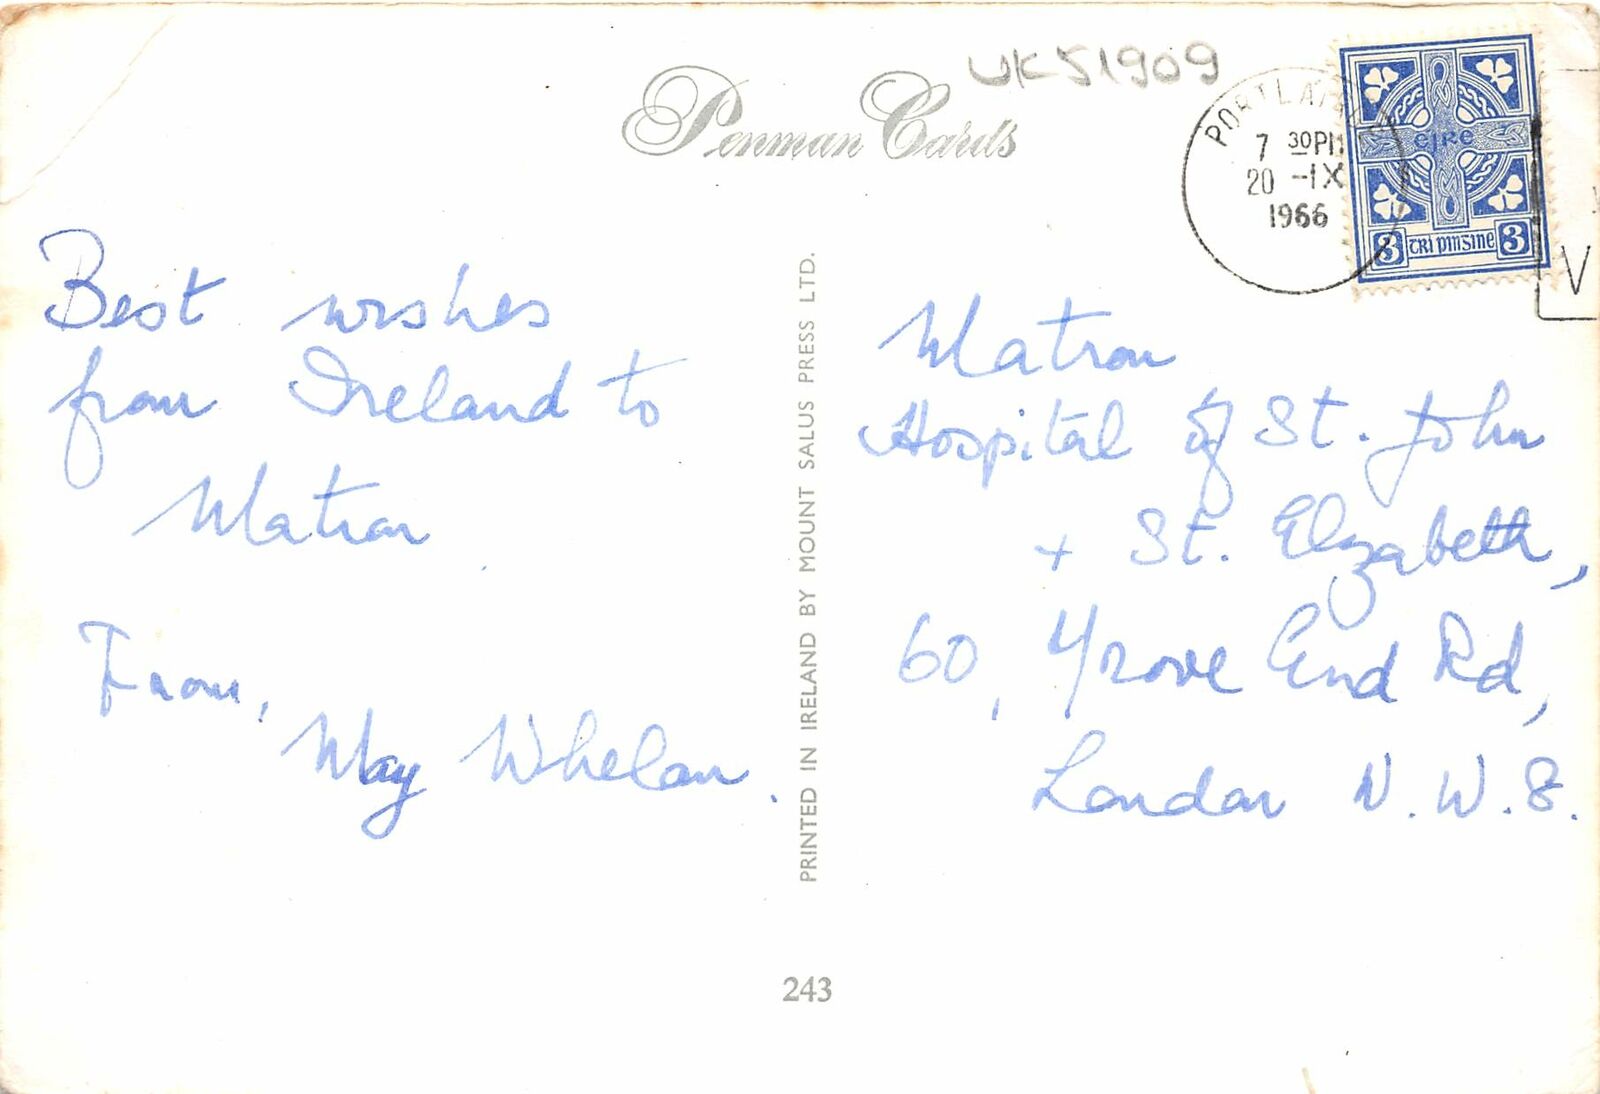 UK51909
Penman Cards
7 30PM
20 -IX
1966
éire
3 trí pingine 3
V
Best wishes
from Ireland to
Matron
From,
May Whelan.
PRINTED IN IRELAND BY MOUNT SALUS PRESS LTD.
Matron
Hospital of St. John
+ St. Elizabeth,
60, Grove End Rd,
London N.W.8.
243